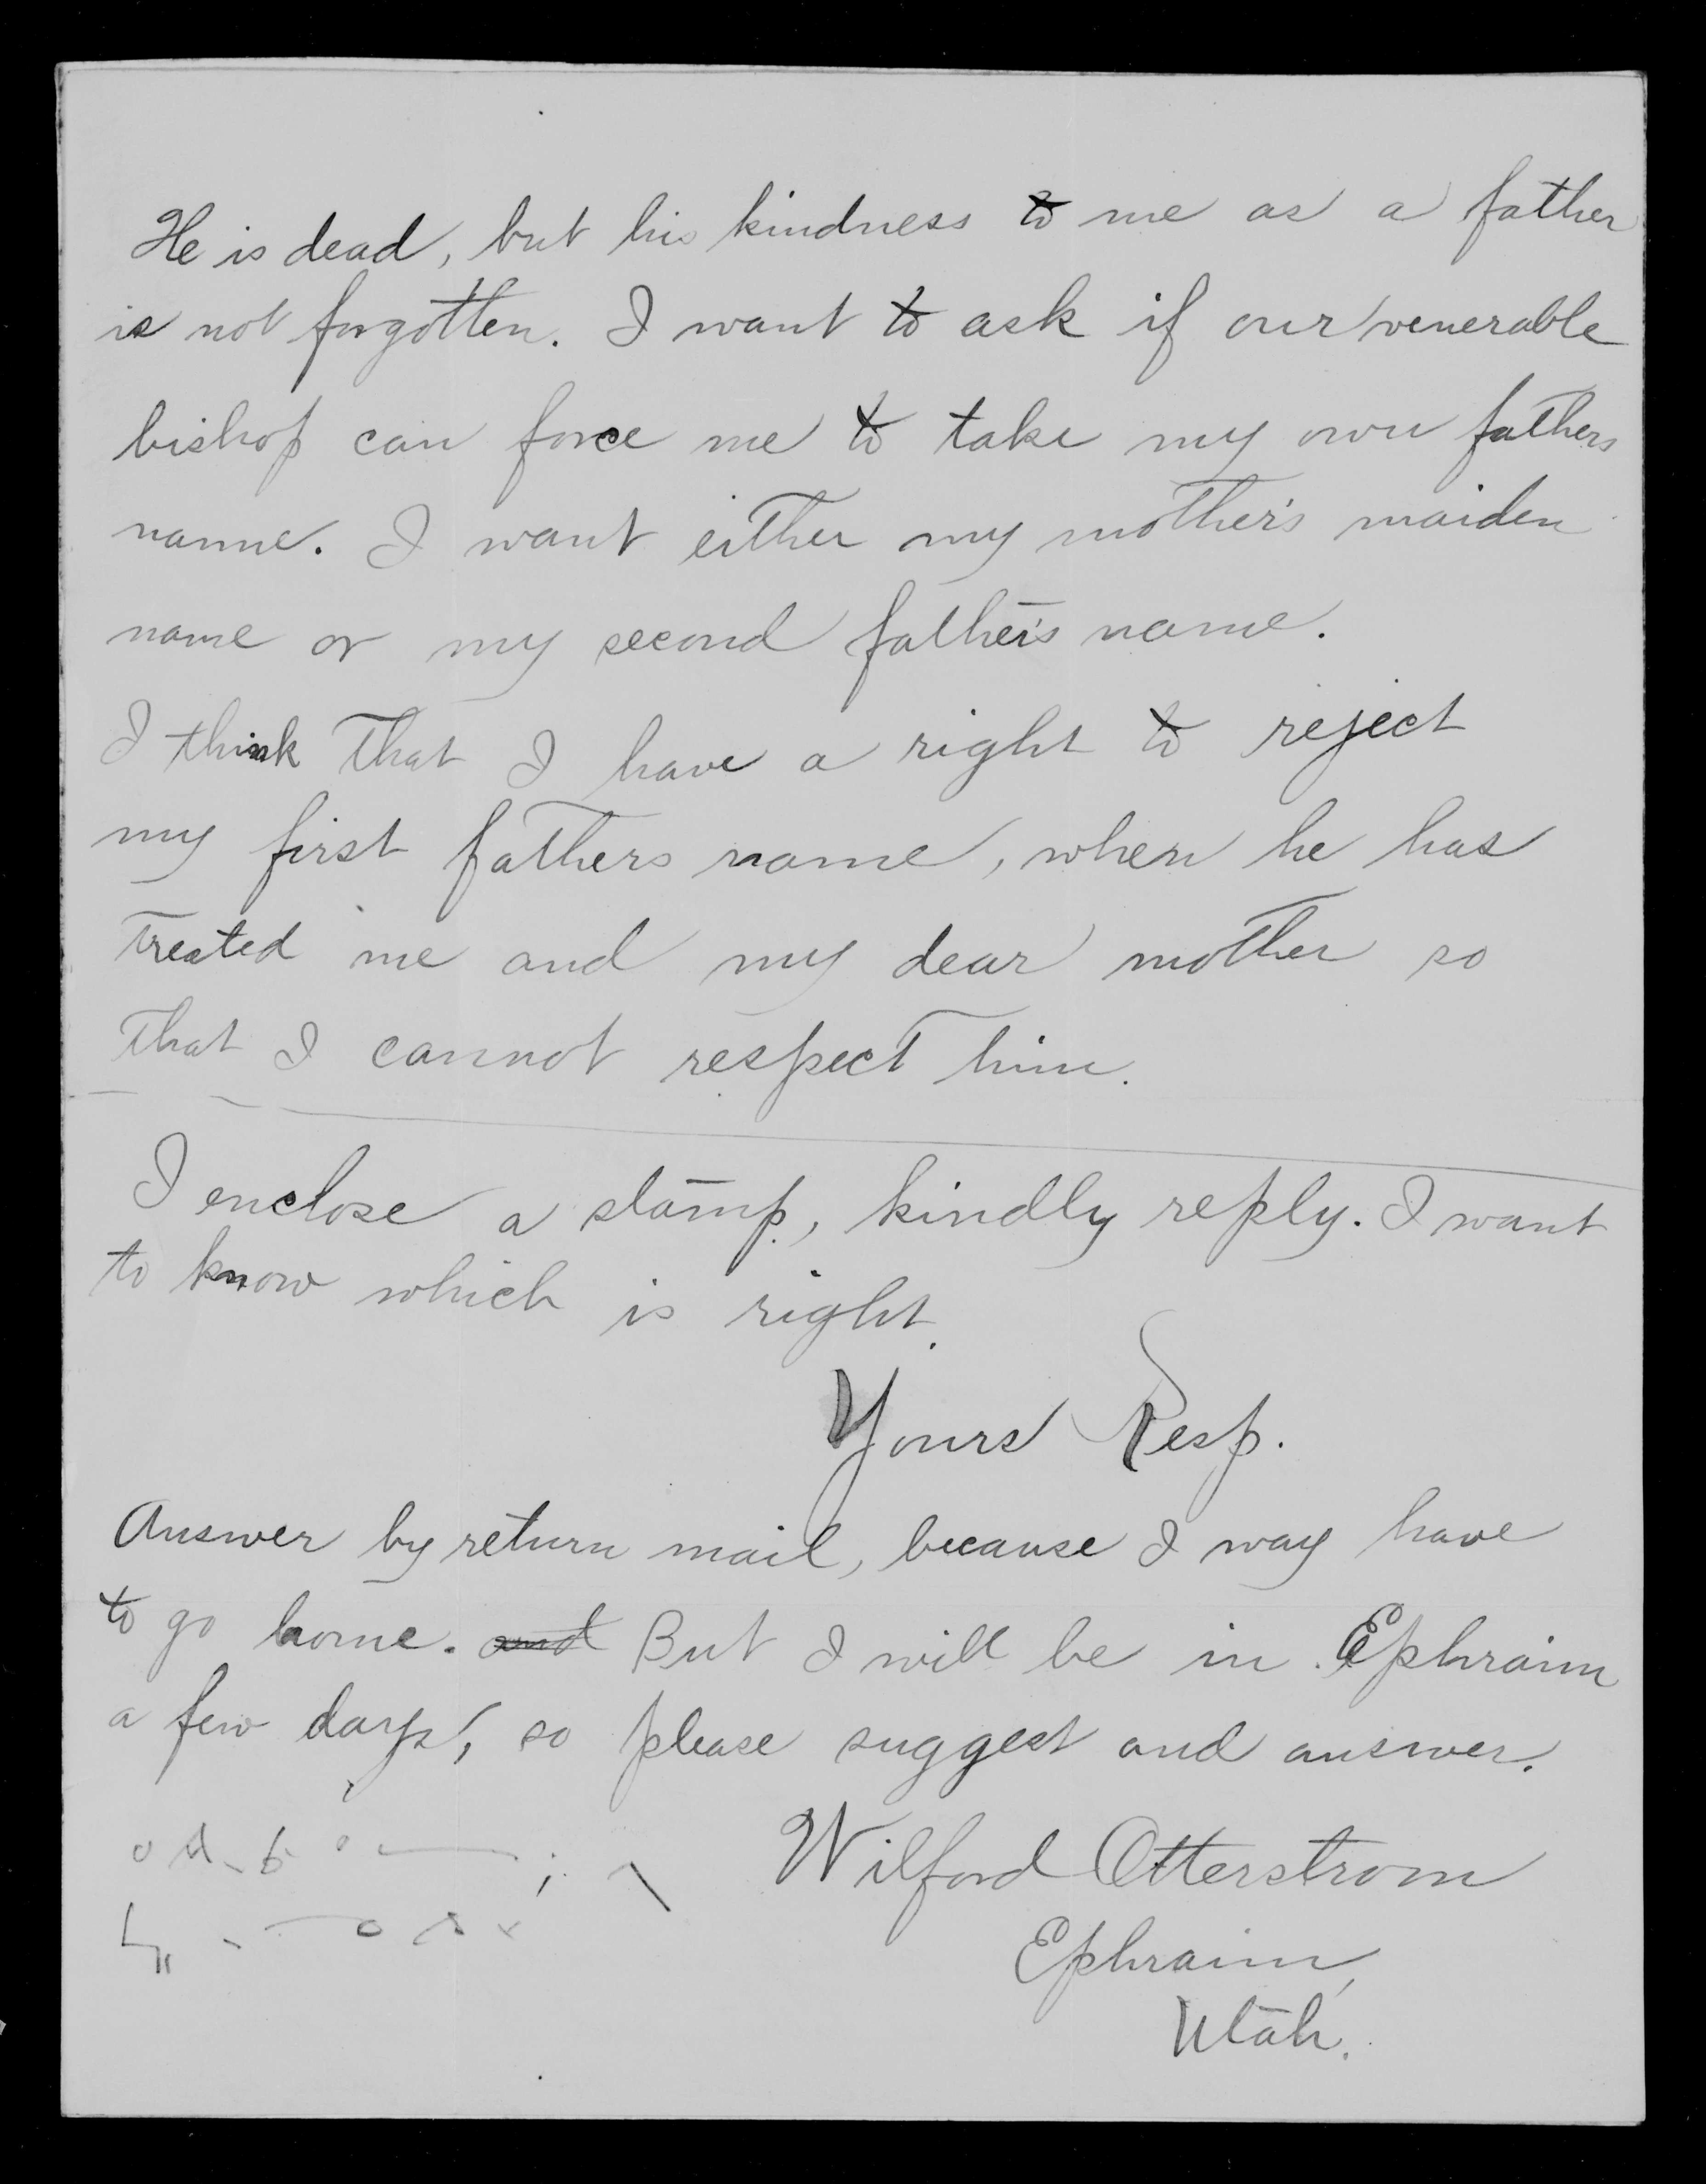 He is dead, but his kindness to me as a father
is not forgotten. I want to ask if our venerable
bishop can force me to take my own fathers
name. I want either my mother's maiden
name or my second father's name.
I think that I have a right to reject
my first fathers name, when he has
treated me and my dear mother so
that I cannot respect him.
I enclose a stamp, kindly reply. I want
to know which is right.
Yours Resp.
Answer by return mail, because I may have
to go home. and But I will be in Ephraim
a few days, so please suggest and answer.
Wilford Otterstrom
Ephraim,
Utah.